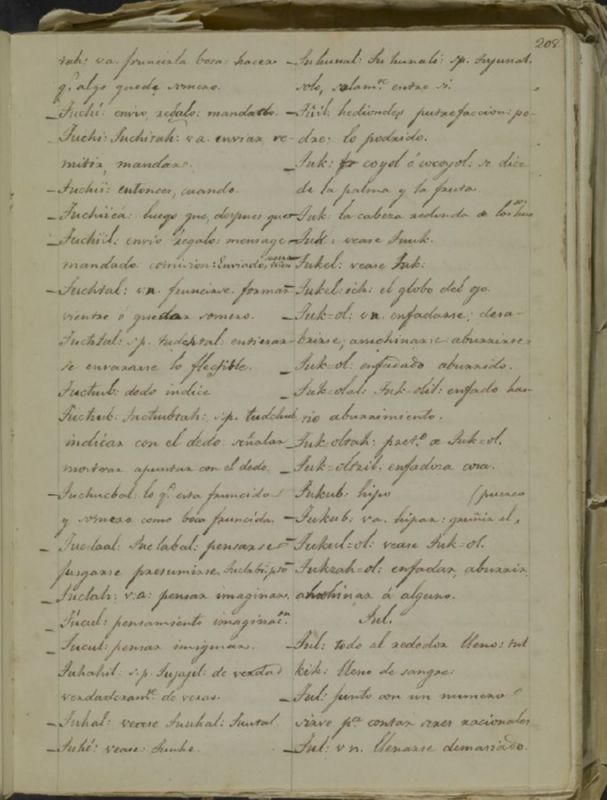 208
tah: va. fruncirla boca: hacer
q.e algo quede somero.
Tuchi: envio, regalo: mandatto.
Tuchi: Tuchitah: va. enviar re-
mitir, mandar.
Tuchii: entonces, cuando.
Tuchiica: luego que, despues que
Tuchiil: envio regalo: mensage
mandado comision: Enviado,
Tuchtal: vn. fruncirse formar
vientre ó quedar somero.
Tuchtal: s.p. tudchtal entiezar-
se envararse lo flegsible.
Tuchub: dedo índice
Tuchub: Tuchubtah: s.p. tudchub
indicar con el dedo: señalar
mostrar apuntar con el dedo.
Tuchucbal: lo q.e esta fruncido
y somero como boca fruncida.
Tuclaal: Tuclabal: pensarse
jusgarse presumirse.
Tuclah: va: pensar imaginar.
Tucul: pensamiento imaginac.on
Tucul: pensar imiginar.
Tuhahil: s.p. Tujajil: de verdad
verdaderam.te de veras.
Tuhal: vease Tuuhal: Tuutal.
Tuhé: vease: Tuuhe.
Tuhunal: Tuhunale: s.p. Tujunal.
solo, solam.te entre si.
Tüil: hediondes putrefaccion: po-
dre: lo podrido.
Tuk: coyol ó cocoyol: se dice
de la palma y la fruta.
Tuk: la cabeza redonda de los
Tuk: vease Tuuk.
Tukel: vease Tuk:
Tukel=ich: el globo del ojo.
Tuk=ol: vn. enfadarse; desa-
brirse, amohinarse aburrirse
Tuk=ol: enfadado aburrido.
Tuk=olal: Tuk=olil: enfado has-
tio aburrimiento.
Tuk=oltah: pret.o de Tuk=ol.
Tuk=oltzil: enfadosa cosa.
Tukub: hipo (puerco
Tukub: va. hipar: gruñir el,
Tukul=ol: vease Tuk=ol.
Tukzah=ol: enfadar, aburrir,
amohinar á alguno.
Tul.
Tul: todo al rededor lleno: tul
kik: lleno de sangre:
Tul: junto con un numero
sirve p.a contar seres racionales
Tul: vn. llenarse demasiado.